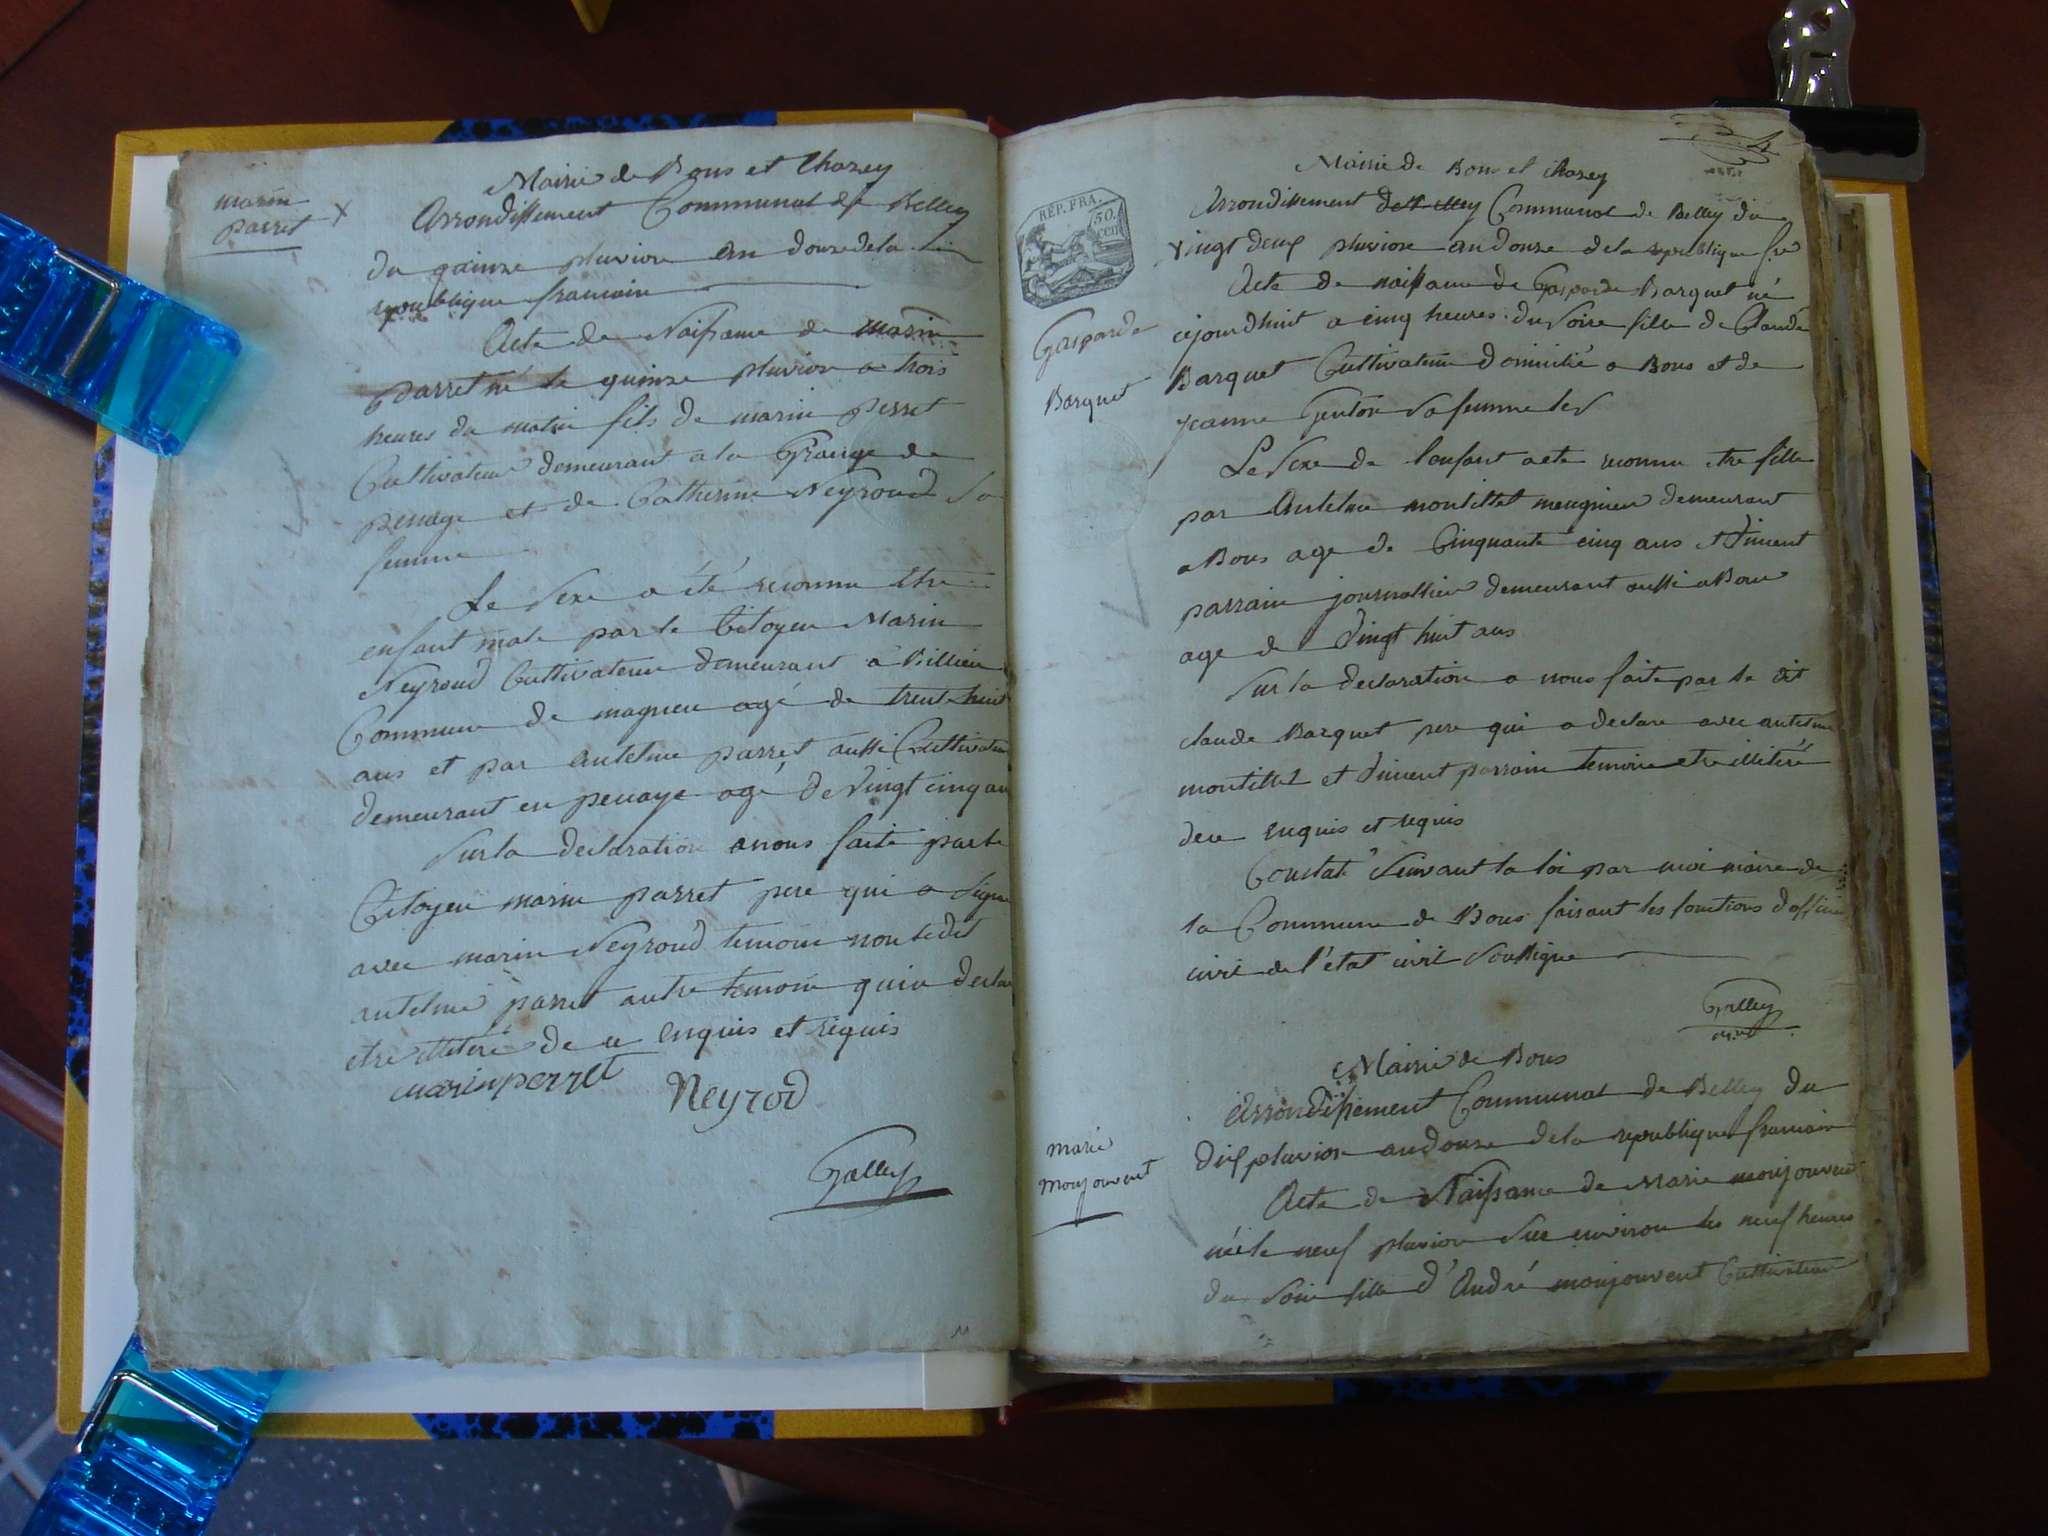 marin
parret x
Mairie de Bons et Chazey
Arrondissement Communal de Belley
du quinze pluviose an douze de la
republique francaise
Acte de Naissance de marin
parret né le quinze pluviose a trois
heures du matin fils de marin perret
Cultivateur demeurant a la Grange de
penaye et de Catherine Neyroud sa
femme
Le Sexe a été reconnu etre
enfant male par le Citoyen Marin
Neyroud Cultivateur demeurant a Billieu
Commune de magneu agé de trente huit
ans et par antelme parret aussi Cultivateur
demeurant en penaye agé de vingt cinq an
Sur la declaration a nous faite par le
Citoyen marin parret pere qui a signe
avec marin Neyroud temoin non ledit
antelme parret autre temoin qui a declare
etre illiteré de ce enquis et requis
marin perret
Neyrod
Galley
REP. FRA.
50.
cen
Gasparde
Barquet
Mairie de Bons et Chazey
Arrondissement Communal de Belley du
vingt deux pluviose an douze de la republique fre
Acte de naissance de Gasparde Barquet né
cejourdhuit a cinq heures du Soire fille de Claude
Barquet Cultivateur domicilié a Bons et de
jeanne sa femme
Le Sexe de l'enfant a ete reconnu etre fille
par Antelme montillet meugnier demeurant
a Bons age de Cinquante cinq ans et Vincent
parrain journallier demeurant aussi a Bons
age de Vingt huit ans
Sur la declaration a nous faite par le dit
claude Barquet pere qui a declare avec antelme
montillet et Vincent parrain temoins etre illiteré
de ce enquis et requis
Constaté Suivant la loi par moi maire de
la Commune de Bons faisant les fonctions d'officier
civil de l'état civil Soussigne
Galley
marie
monjouvent
Mairie de Bons
Arrondissement Communal de Belley du
dix pluviose an douze de la republique francaise
Acte de Naissance de Marie monjouvent
née le neuf pluviose Sur environ les neuf heures
du Soir fille d'André monjouvent Cultivateur